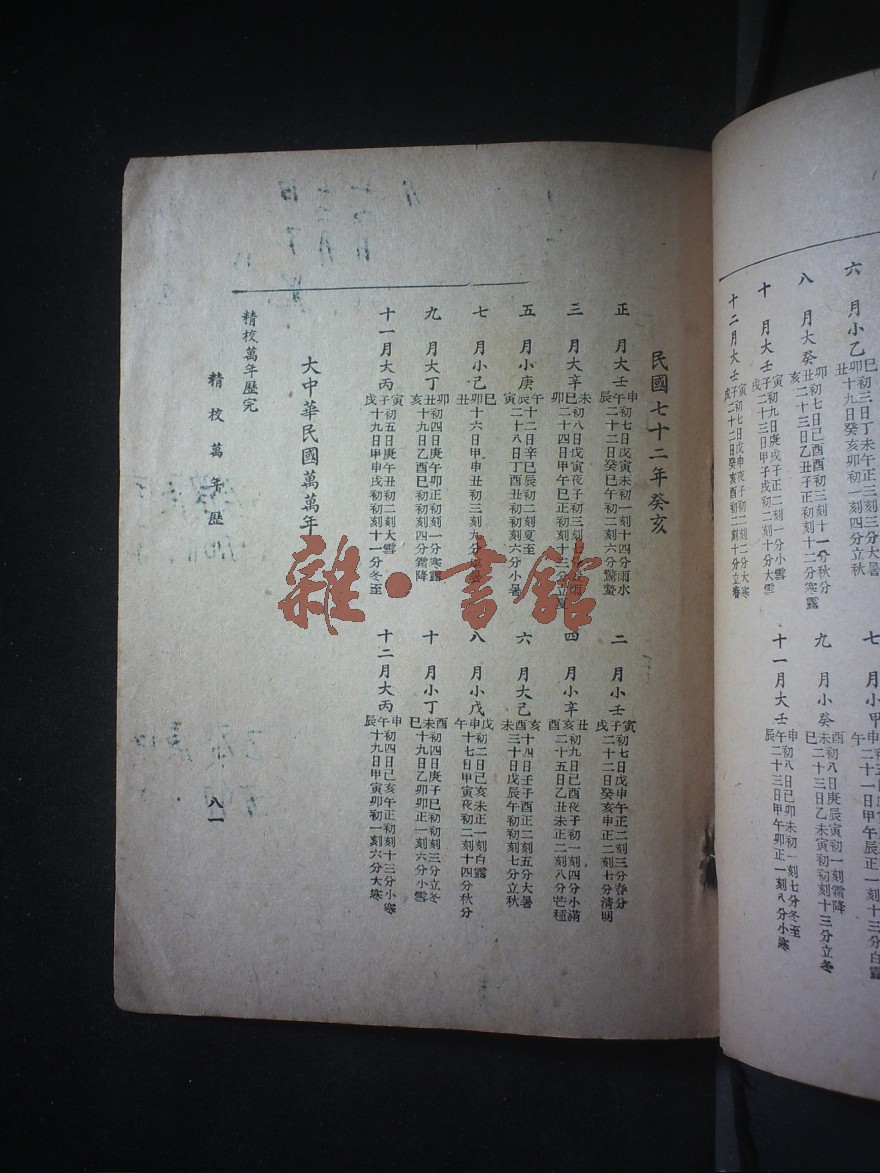 六月小乙
巳卯丑
初三日丁未午正三刻三分大暑
十九日癸亥卯初一刻四分立秋
八月大癸
卯丑亥
初七日己酉酉初三刻十一分秋分
二十三日乙丑子正初刻十二分寒露
十月大壬
寅子戌
初九日庚戌子正二刻一分小雪
二十三日甲子戌初二刻十分大雪
十二月大壬
寅子戌
初七日戊申夜子初二刻二分大寒
二十二日癸亥酉初二刻二分立春
七月小甲
九月小癸
酉未巳
初八日庚辰寅初一刻霜降
二十三日乙未寅初初刻十三分立冬
十一月大壬
申午辰
初八日己卯未初一刻七分冬至
二十三日甲午卯正一刻八分小寒
民國七十二年癸亥
正月大壬
申午辰
初七日戊寅初刻一十四分雨水
二十二日癸巳正初二刻六分驚蟄
三月大辛
未巳卯
初八日戊寅夜子初三刻
二十四日甲午巳正初刻十三分立夏
五月小庚
午辰寅
十二日辛巳辰初二刻夏至
二十八日丁酉丑初初刻六分小暑
七月小己
巳卯丑
十六日甲申丑初三刻九分
九月大丁
卯丑亥
初四日庚午卯正初刻一分寒露
十九日乙酉巳初初刻四分霜降
十一月大丙
寅子戌
初五日庚午丑初二刻大雪
十九日甲申戌初初刻十一分冬至
二月小壬
寅子戌
初七日戊申午正二刻三分春分
二十二日癸亥申正二刻七分清明
四月小辛
丑亥酉
初九日己酉夜子初一刻四分小滿
二十五日乙丑未正二刻八分芒種
六月大己
亥酉未
十四日壬子酉正二刻五分大暑
三十日戊辰午初初刻七分立秋
八月小戊
戌申午
初二日己亥未正一刻白露
十七日甲寅夜初二刻十四分秋分
十月小丁
酉未巳
初四日庚子巳初刻三分立冬
十九日乙卯卯正一刻六分小雪
十二月大丙
申午辰
初四日己亥午正初刻十三分小寒
十九日甲寅卯初一刻六分大寒
大中華民國萬萬年
精校萬年歷完
精校萬年歷
八一
雜·書館